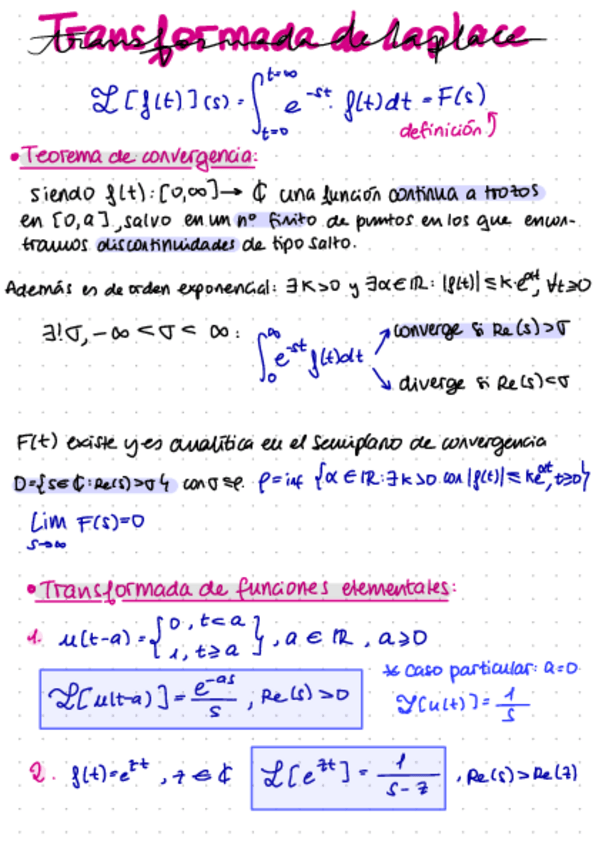 Transformada de Laplace
ℒ[f(t)](s) = ∫_{t=0}^{t=∞} e^{-st} · f(t)dt = F(s)
definición
• Teorema de convergencia:
siendo f(t): [0,∞] → ℂ una función continua a trozos
en [0,a], salvo en un nº finito de puntos en los que encon-
tramos discontinuidades de tipo salto.
Además es de orden exponencial: ∃K>0 y ∃α∈ℝ: |f(t)| ≤ K·e^{αt}, ∀t≥0
∃!σ, -∞ < σ < ∞ : ∫_0^∞ e^{-st} f(t)dt
converge si Re(s)>σ
diverge si Re(s)<σ
F(t) existe y es analítica en el semiplano de convergencia
D={s∈ℂ: Re(s)>σ} con σ≤ρ. ρ=inf {α∈ℝ: ∃k>0 con |f(t)| ≤ ke^{αt}, t≥0}
Lim F(s)=0
s→∞
• Transformada de funciones elementales:
1. u(t-a) = {0, t<a
1, t≥a}, a ∈ ℝ, a≥0
ℒ[u(t-a)] = e^{-as}/s ; Re(s)>0
* Caso particular: a=0
ℒ[u(t)] = 1/s
2. f(t)=e^{zt}, z ∈ ℂ ℒ[e^{zt}] = 1/(s-z), Re(s)>Re(z)